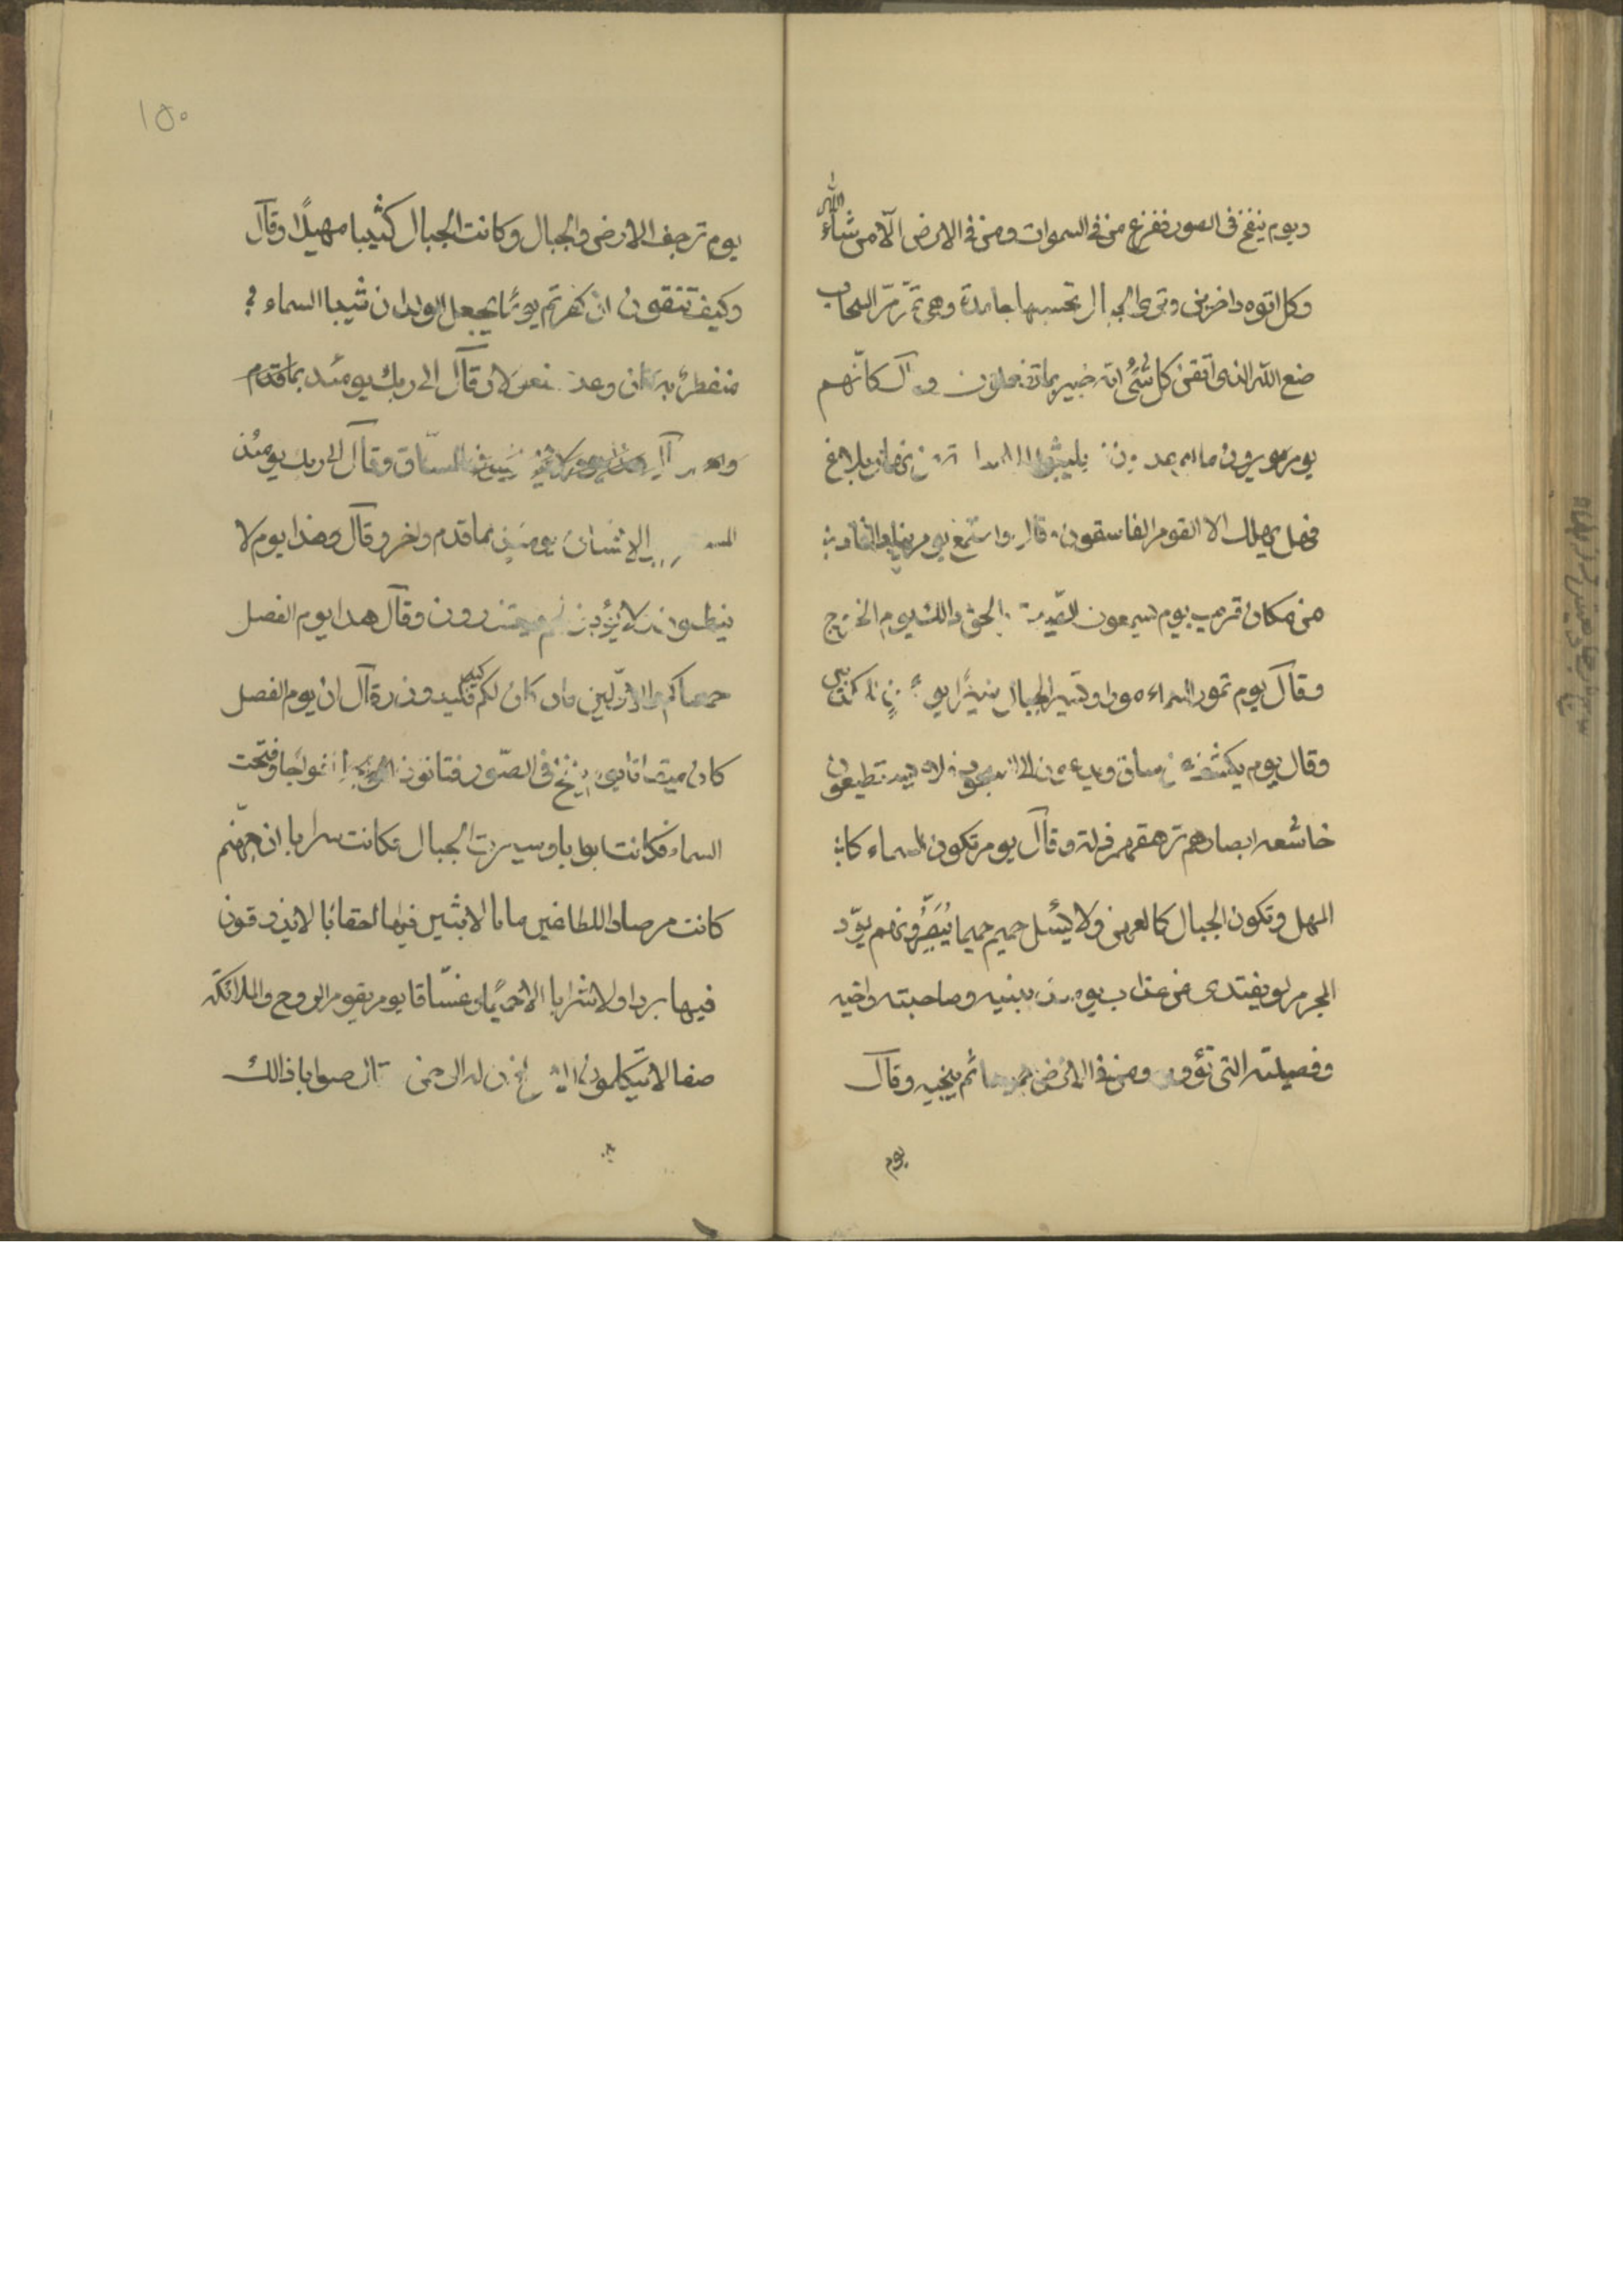 ويوم ينفخ فى الصور ففزع من فى السموات ومن فى الارض الّا من شاء الله
وكل اتوه داخرين وترى الجبال تحسبها جامدة وهى تمرّ مرّ السحاب
صنع الله الذى اتقن كل شئ انه خبير بما تفعلون وقال كانّهم
يوم يرون ما يوعدون يلبثوا الا من نهار بلاغ
فهل يهلك الا القوم الفاسقون وقال واستمع يوم يناد المناد
من مكان قريب يوم يسمعون الصّيحة بالحق ذالك يوم الخروج
وقال يوم تمور السماء مورا وتسير الجبال سيرًا
وقال يوم يكشف ساق ويدعون الى السجود فلا يستطيعون
خاشعه ابصارهم ترهقهم ذلة وقال يوم تكون السماء كا
المهل وتكون الجبال كالعهن ولا يسئل حميم حميما يُبَصَّرُونهم يوّد
المجرم لو يفتدى من عذاب يومئذ ببنيه وصاحبته واخيه
وفصيلته التى تؤويه ومن فى الارض جميعا ثم ينجيه وقال
يوم
١٥٠
يوم ترجف الارض والجبال وكانت الجبال كثيبا مهيلًا وقال
وكيف تتقون ان كفرتم يومًا يجعل الولدان شيبا السماء
منفطر به كان وعد مفعولا وقال الى ربك يومئذ بما قدم
المساق وقال الى ربك يومئذ
الانسان يومئذ بما قدم واخر وقال وهذا يوم لا
ينطقون ولا يؤذن لهم فيعتذرون وقال هذا يوم الفصل
جمعناكم والاوّلين فان كان لكم كيد فكيدون وقال ان يوم الفصل
كان ميقاتا يوم ينفخ فى الصّور فتاتون افواجا وفتحت
السماء فكانت ابوابا وسيرت الجبال فكانت سرابا ان جهنم
كانت مرصادا للطاغين مابا لابثين فيها احقابا لا يذوقون
فيها بردا ولا شرابا الا حميمًا وغسّاقا يوم يقوم الروح والملائكة
صفا لا يتكلمون الا من اذن له الرحمن وقال صوابا ذالك